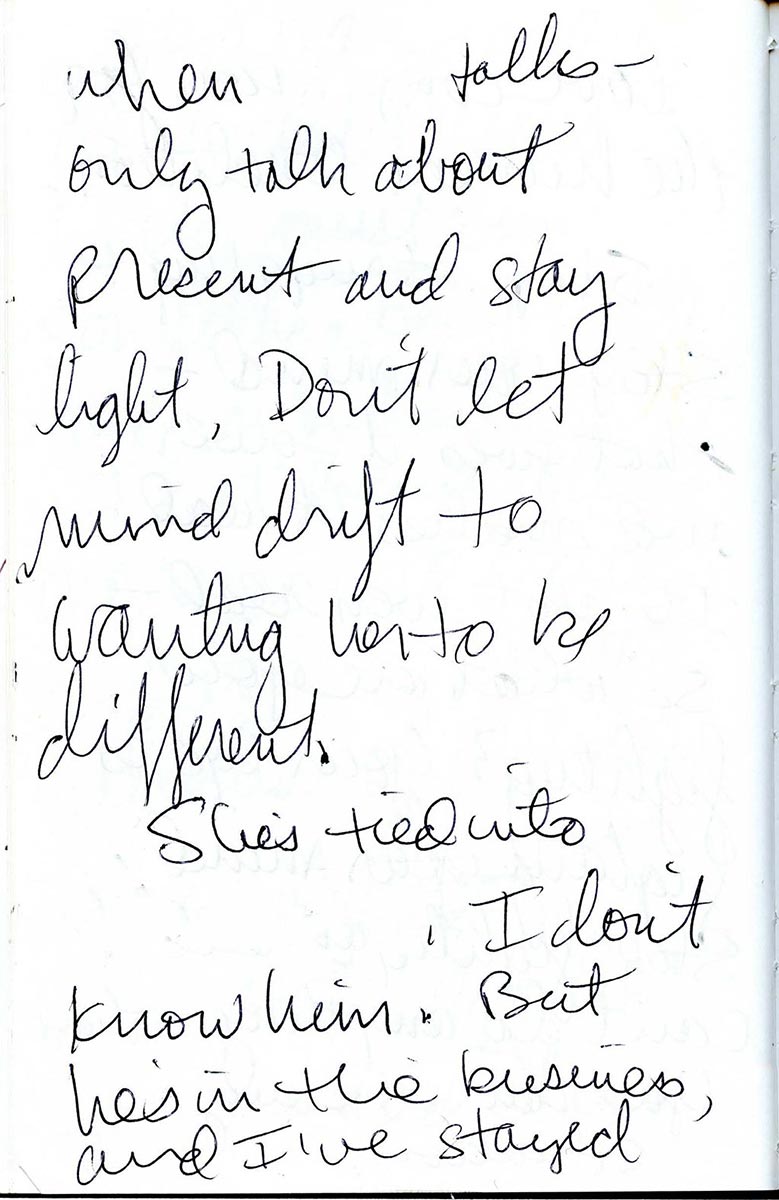 when talks -
only talk about
present and stay
light, Don't let
mind drift to
wanting her to be
different.
She's tied into
, I don't
know him. But
he's in the business,
and I've stayed